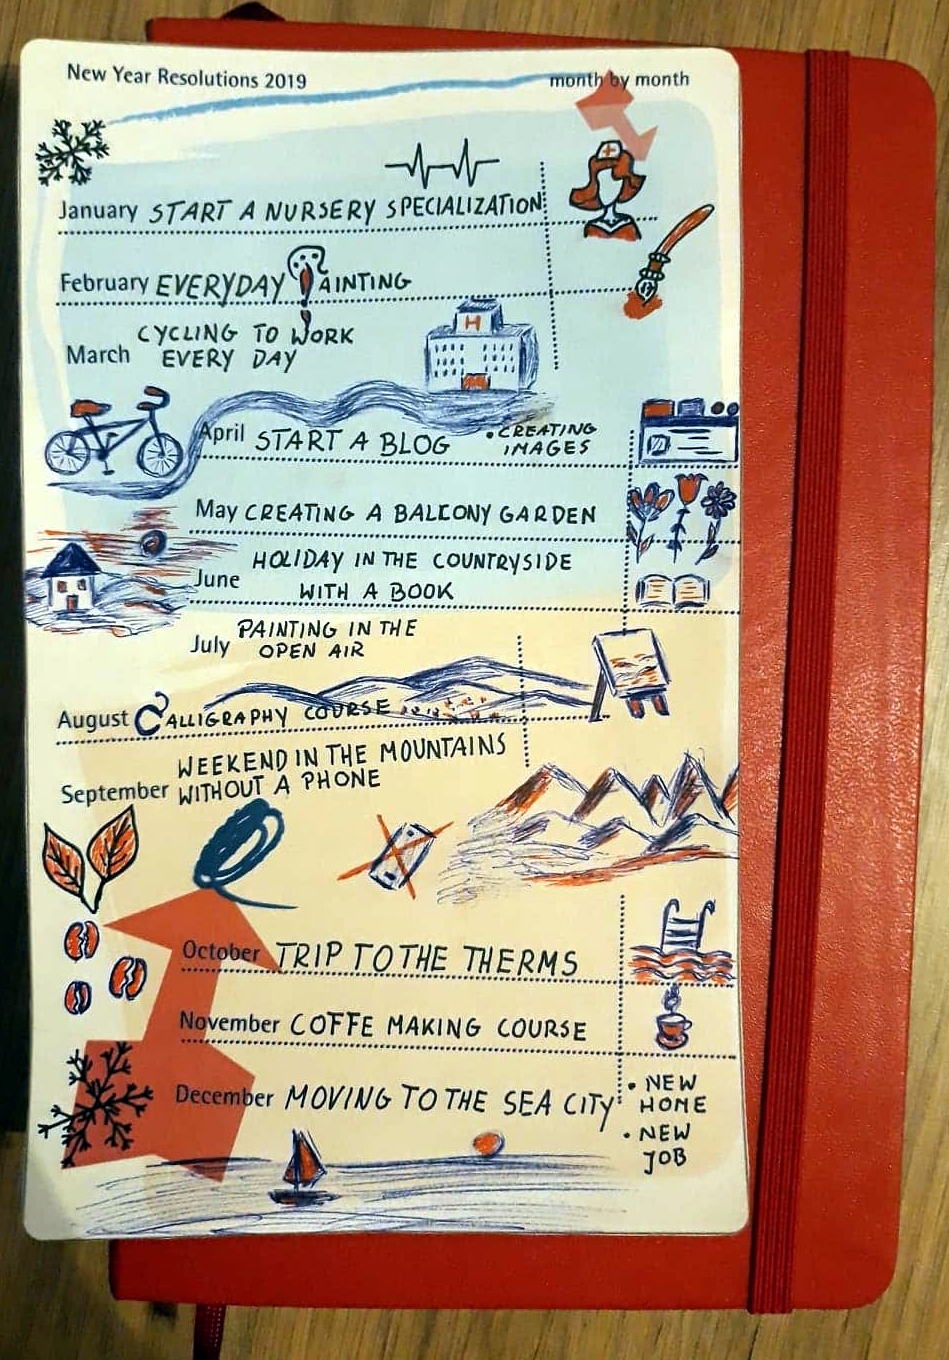 New Year Resolutions 2019 month by month
January START A NURSERY SPECIALIZATION
February EVERYDAY PAINTING
March CYCLING TO WORK
EVERY DAY
H
April START A BLOG • CREATING
IMAGES
May CREATING A BALCONY GARDEN
June HOLIDAY IN THE COUNTRYSIDE
WITH A BOOK
July PAINTING IN THE
OPEN AIR
August CALLIGRAPHY COURSE
September WEEKEND IN THE MOUNTAINS
WITHOUT A PHONE
October TRIP TO THE THERMS
November COFFE MAKING COURSE
December MOVING TO THE SEA CITY
• NEW
HOME
• NEW
JOB